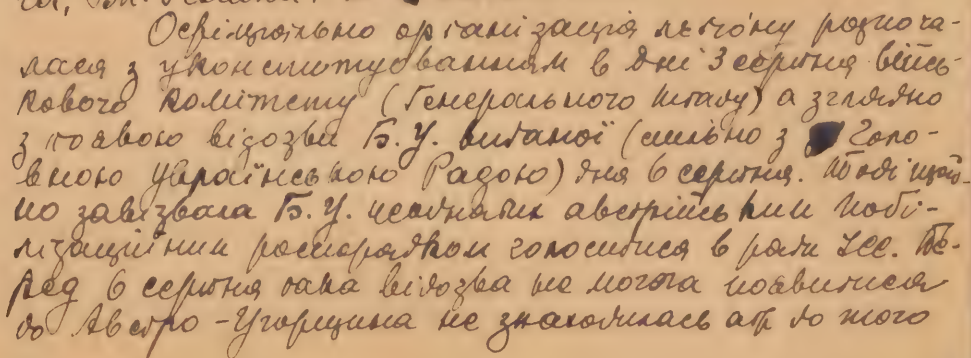 Офіціяльно організація легіону розпоча-
лася з уконституованням в дні 3 серпня війсь-
кового комітету (Генерального штабу) а зглядно
з появою відозви Б. У. виданої (спільно з Голо-
вною Українською Радою) дня 6 серпня. Тоді щой-
но завізвала Б. У. необнятих австрійським мобі-
лізаційним розпорядком голоситися в ряди УСС. Пе-
ред 6 серпня така відозва не могла появитися
бо Австро-Угорщина не знаходилась аж до того